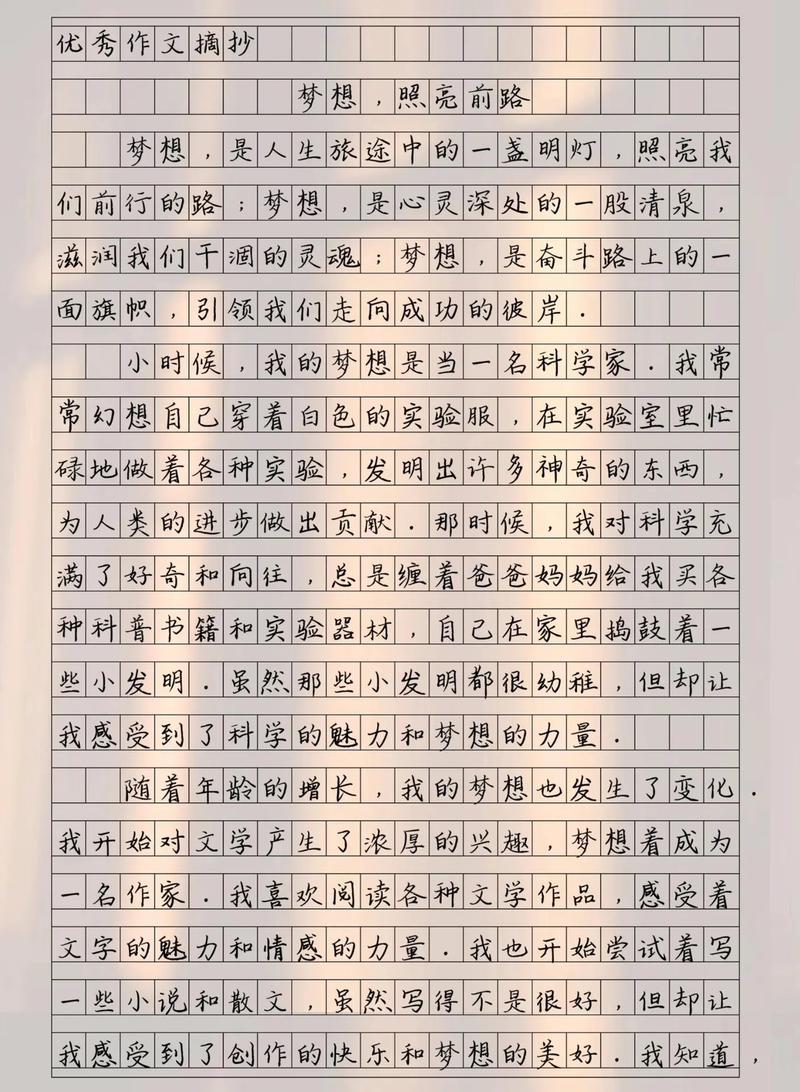 优秀作文摘抄
梦想，照亮前路
梦想，是人生旅途中的一盏明灯，照亮我
们前行的路；梦想，是心灵深处的一股清泉，
滋润我们干涸的灵魂；梦想，是奋斗路上的一
面旗帜，引领我们走向成功的彼岸．
小时候，我的梦想是当一名科学家．我常
常幻想自己穿着白色的实验服，在实验室里忙
碌地做着各种实验，发明出许多神奇的东西，
为人类的进步做出贡献．那时候，我对科学充
满了好奇和向往，总是缠着爸爸妈妈给我买各
种科普书籍和实验器材，自己在家里捣鼓着一
些小发明．虽然那些小发明都很幼稚，但却让
我感受到了科学的魅力和梦想的力量．
随着年龄的增长，我的梦想也发生了变化．
我开始对文学产生了浓厚的兴趣，梦想着成为
一名作家．我喜欢阅读各种文学作品，感受着
文字的魅力和情感的力量．我也开始尝试着写
一些小说和散文，虽然写得不是很好，但却让
我感受到了创作的快乐和梦想的美好．我知道，